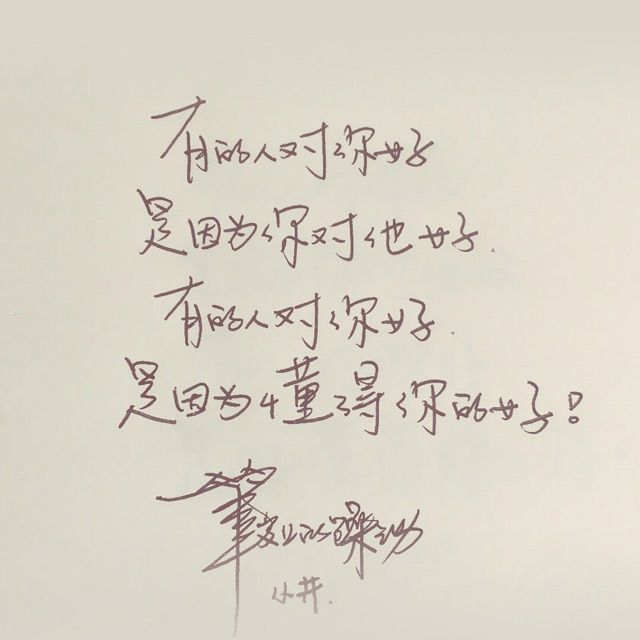 有的人对你好
是因为你对他好.
有的人对你好.
是因为懂得你的好!
筆尖上的躁动
小井.